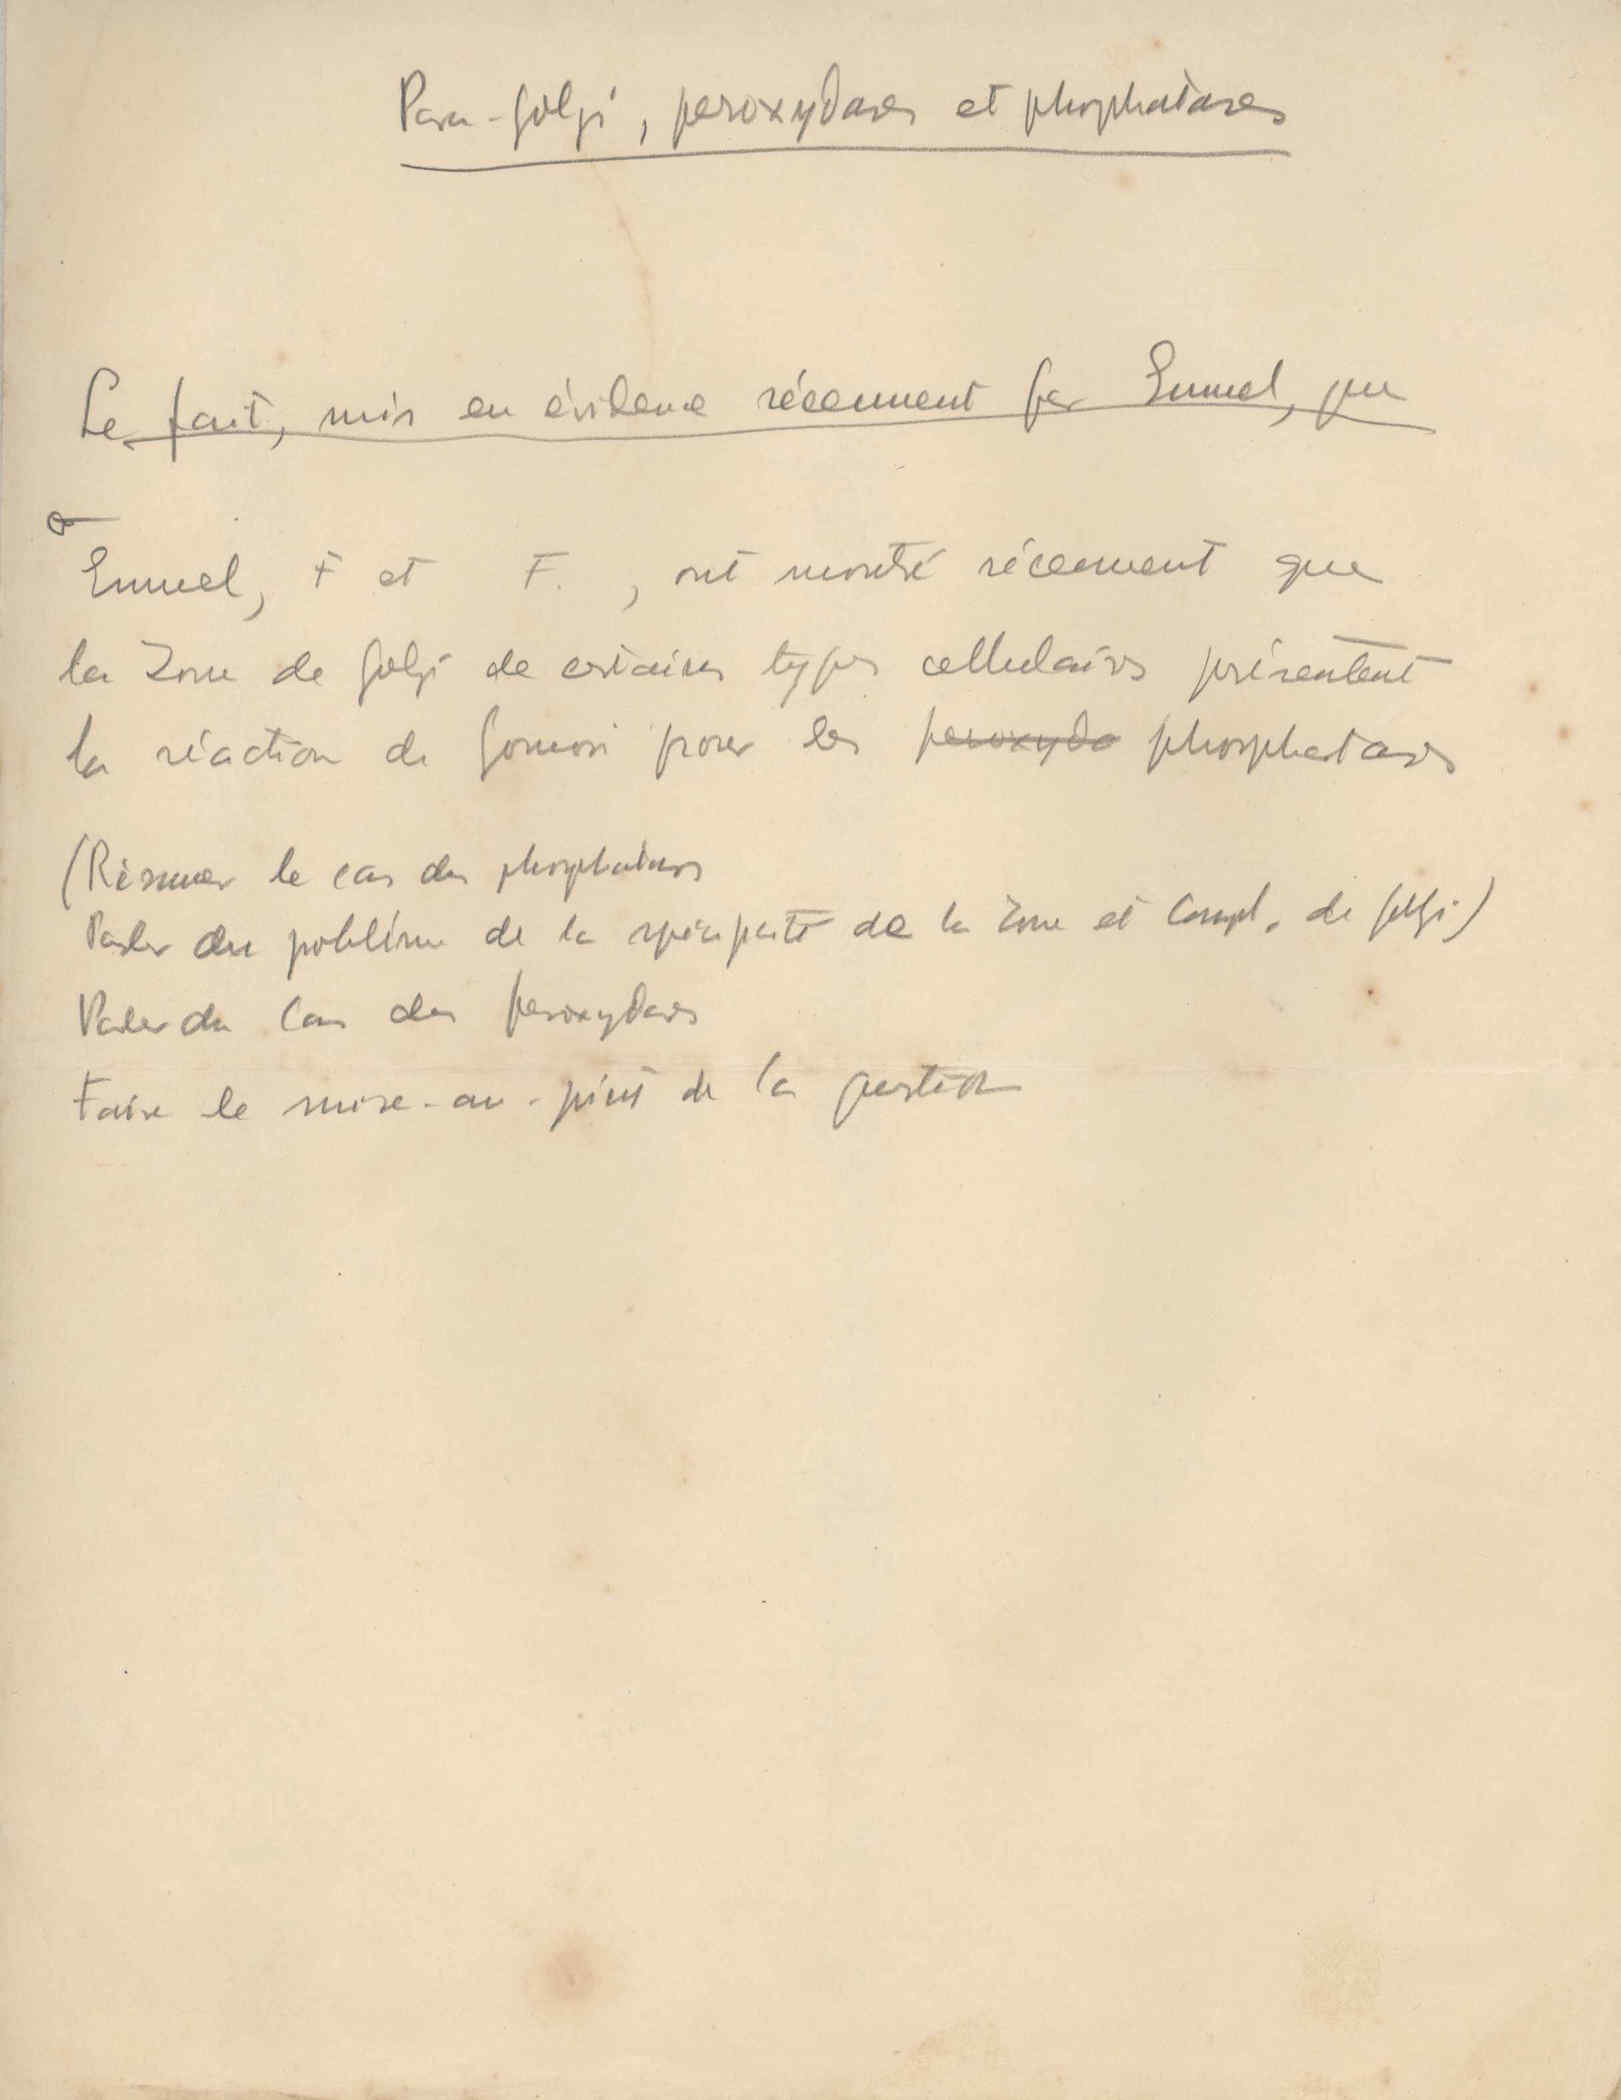 Para-Golgi, peroxydases et phosphatases
Le fait, mis en évidence récemment par Emmel, que
Emmel, F et F. , ont montré récemment que
la zone de Golgi de certaines types cellulaires présentent
la réaction de Gomori pour les peroxyda phosphatases
(Résumer le cas des phosphatases
Parler du problème de la spécificité de la zone et Compl. de Golgi)
Parler du Cas des peroxydases
Faire le mise-au-point de la question